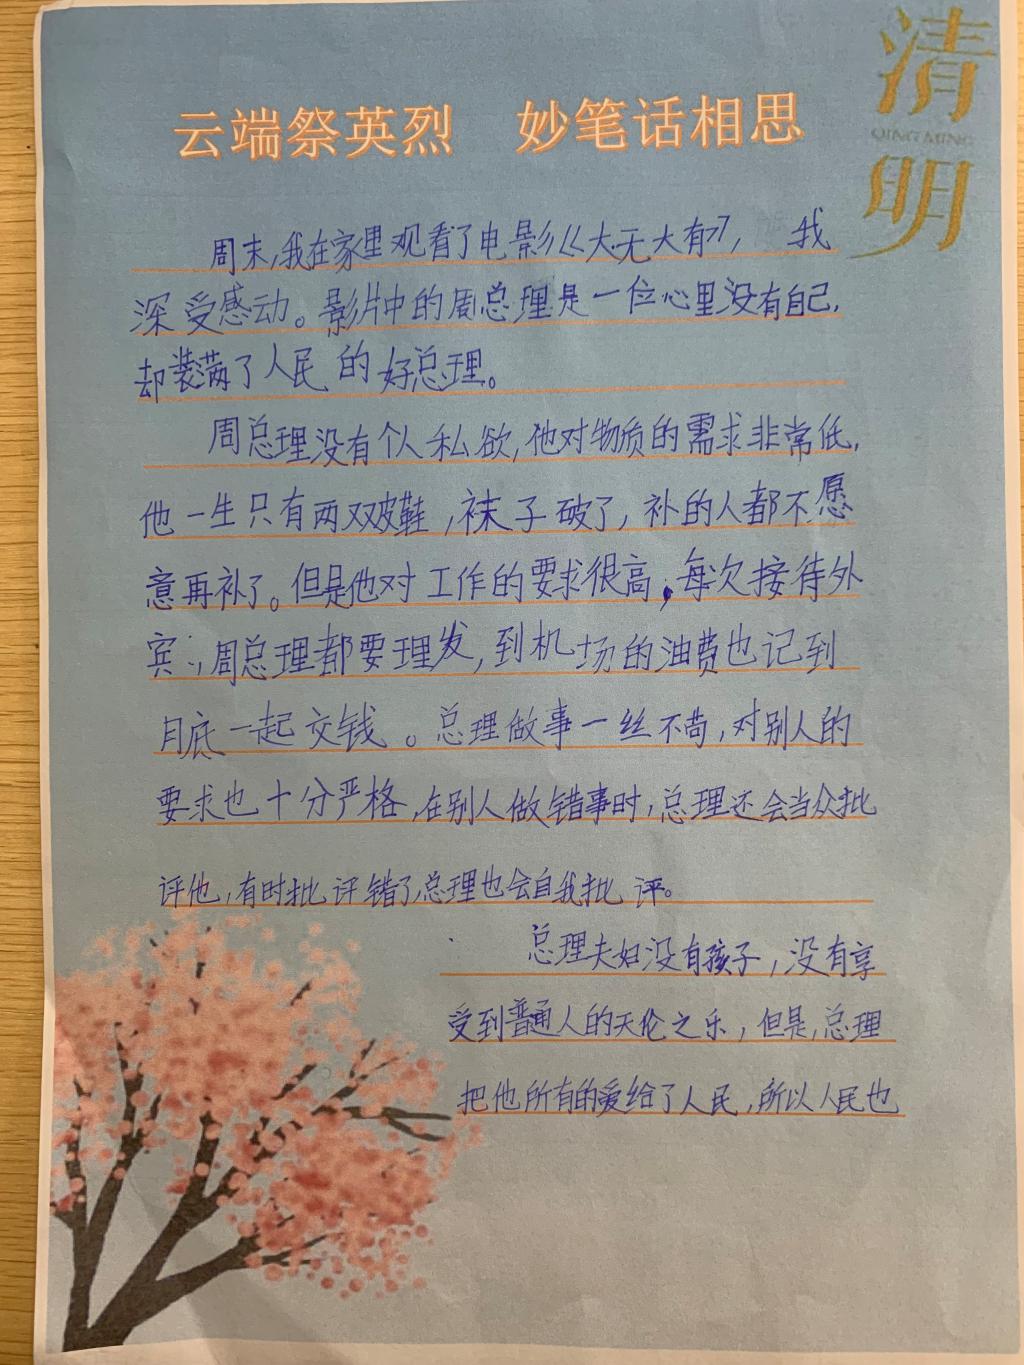 清
QING MING
明
云端祭英烈 妙笔话相思
周末,我在家里观看了电影《大无大有》, 我
深受感动。影片中的周总理是一位心里没有自己,
却装满了人民的好总理。
周总理没有个人私欲,他对物质的需求非常低,
他一生只有两双皮鞋,袜子破了,补的人都不愿
意再补了。但是他对工作的要求很高,每次接待外
宾,周总理都要理发,到机场的油费也记到
月底一起交钱。总理做事一丝不苟,对别人的
要求也十分严格,在别人做错事时,总理还会当众批
评他,有时批评错了,总理也会自我批评。
总理夫妇没有孩子,没有享
受到普通人的天伦之乐,但是,总理
把他所有的爱给了人民,所以人民也